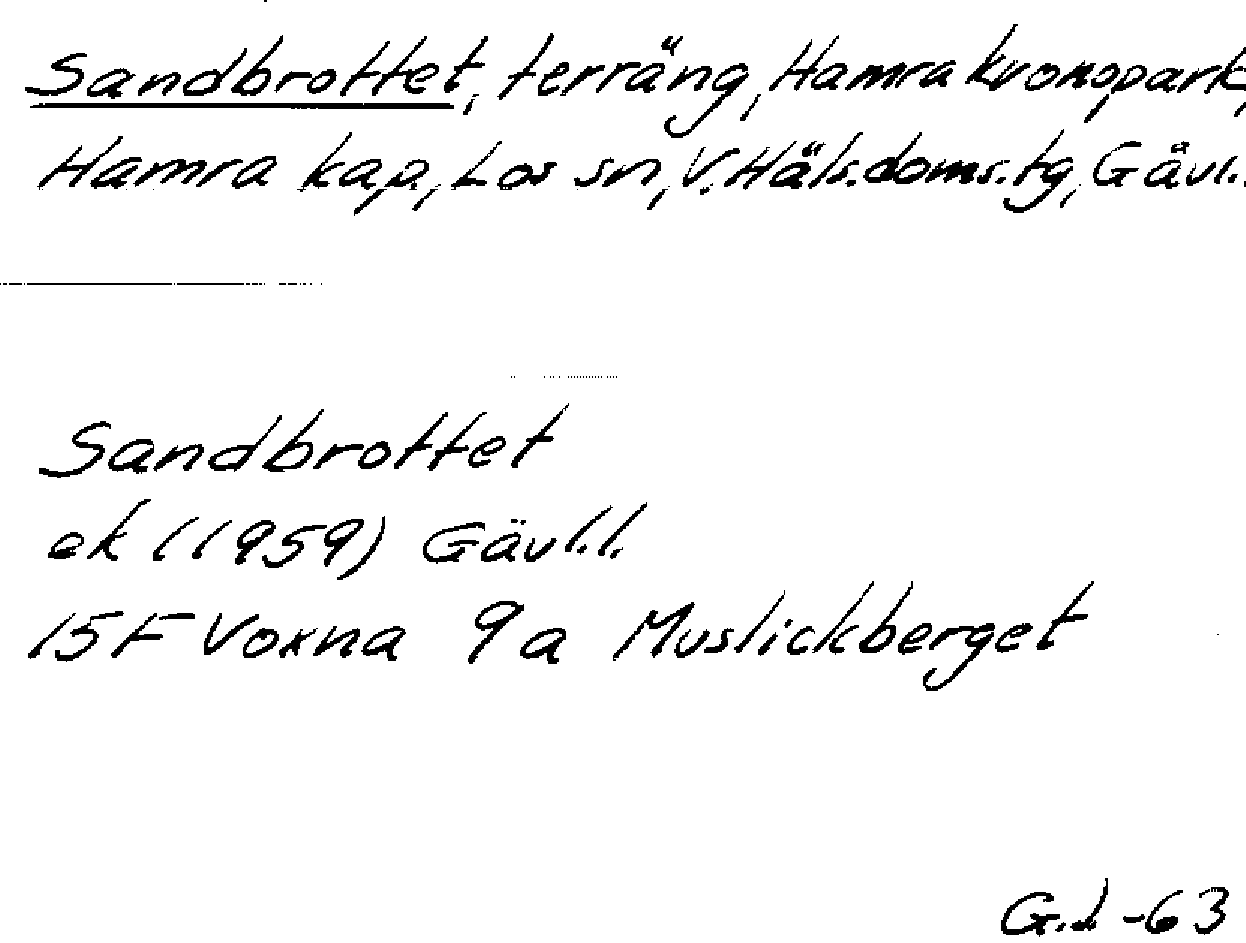 Sandbrottet, terräng, Hamra kronopark,
Hamra kap, Los sn, V. Häls. doms. tg, Gävl.
Sandbrottet
ek (1959) Gävl.l.
15F Voxna 9a Muslickberget
-63